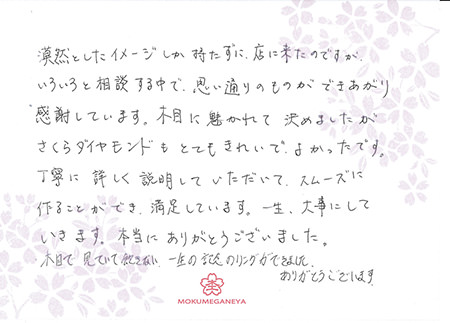 漠然としたイメージしか持たずに、店に来たのですが、
いろいろと相談する中で、思い通りのものができあがり
感謝しています。木目に魅かれて決めましたが
さくらダイヤモンドもとてもきれいで、よかったです。
丁寧に詳しく説明していただいて、スムーズに
作ることができ、満足しています。一生、大事にして
いきます。本当にありがとうございました。
木目で見ていて飽きない、一生の記念のリングができました。
ありがとうございます。
MOKUMEGANEYA